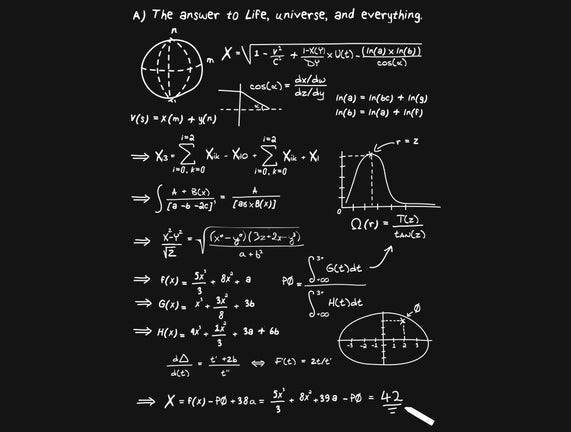 A) The answer to Life, universe, and everything.
n
m
X = √(1 - v²/c² + (1-X(Y)/DY) x U(t) - (ln(a) x ln(b))/cos(α))
cos(α) = (dx/dw)/(dz/dy)
α
ln(a) = ln(bc) + ln(g)
ln(b) = ln(a) + ln(f)
V(s) = X(m) + y(n)
⇒ X₃ = Σ Xik - X10 + Σ Xik + X1
i=2
i=0, k=0
i=2
i=0, k=0
r = z
0
⇒ ∫ (A + B(x))/[a - b - 2c] = A/[a6xB(x)]
Ω(r) = T(z)/tAN(z)
⇒ (X² - Y²)/√2 = √((x⁰ - y⁰)(3z + 2x - y³/8)/(a + b²))
⇒ F(x) = 5x³/3 + 8x² + a
PØ = ∫ G(t)dt / ∫ H(t)dt
3+
+∞
3+
+∞
⇒ G(x) = x³ + 3x²/8 + 3b
Ø
⇒ H(x) = 4x³ + 2x²/3 + 3a + 6b
-3 -2 -1 1 2 3
dΔ/d(t) = (t' + 2b)/t'' ⇔ F'(t) = 2t/t'
⇒ X = F(x) - PØ + 38a = 5x³/3 + 8x² + 39a - PØ = 42